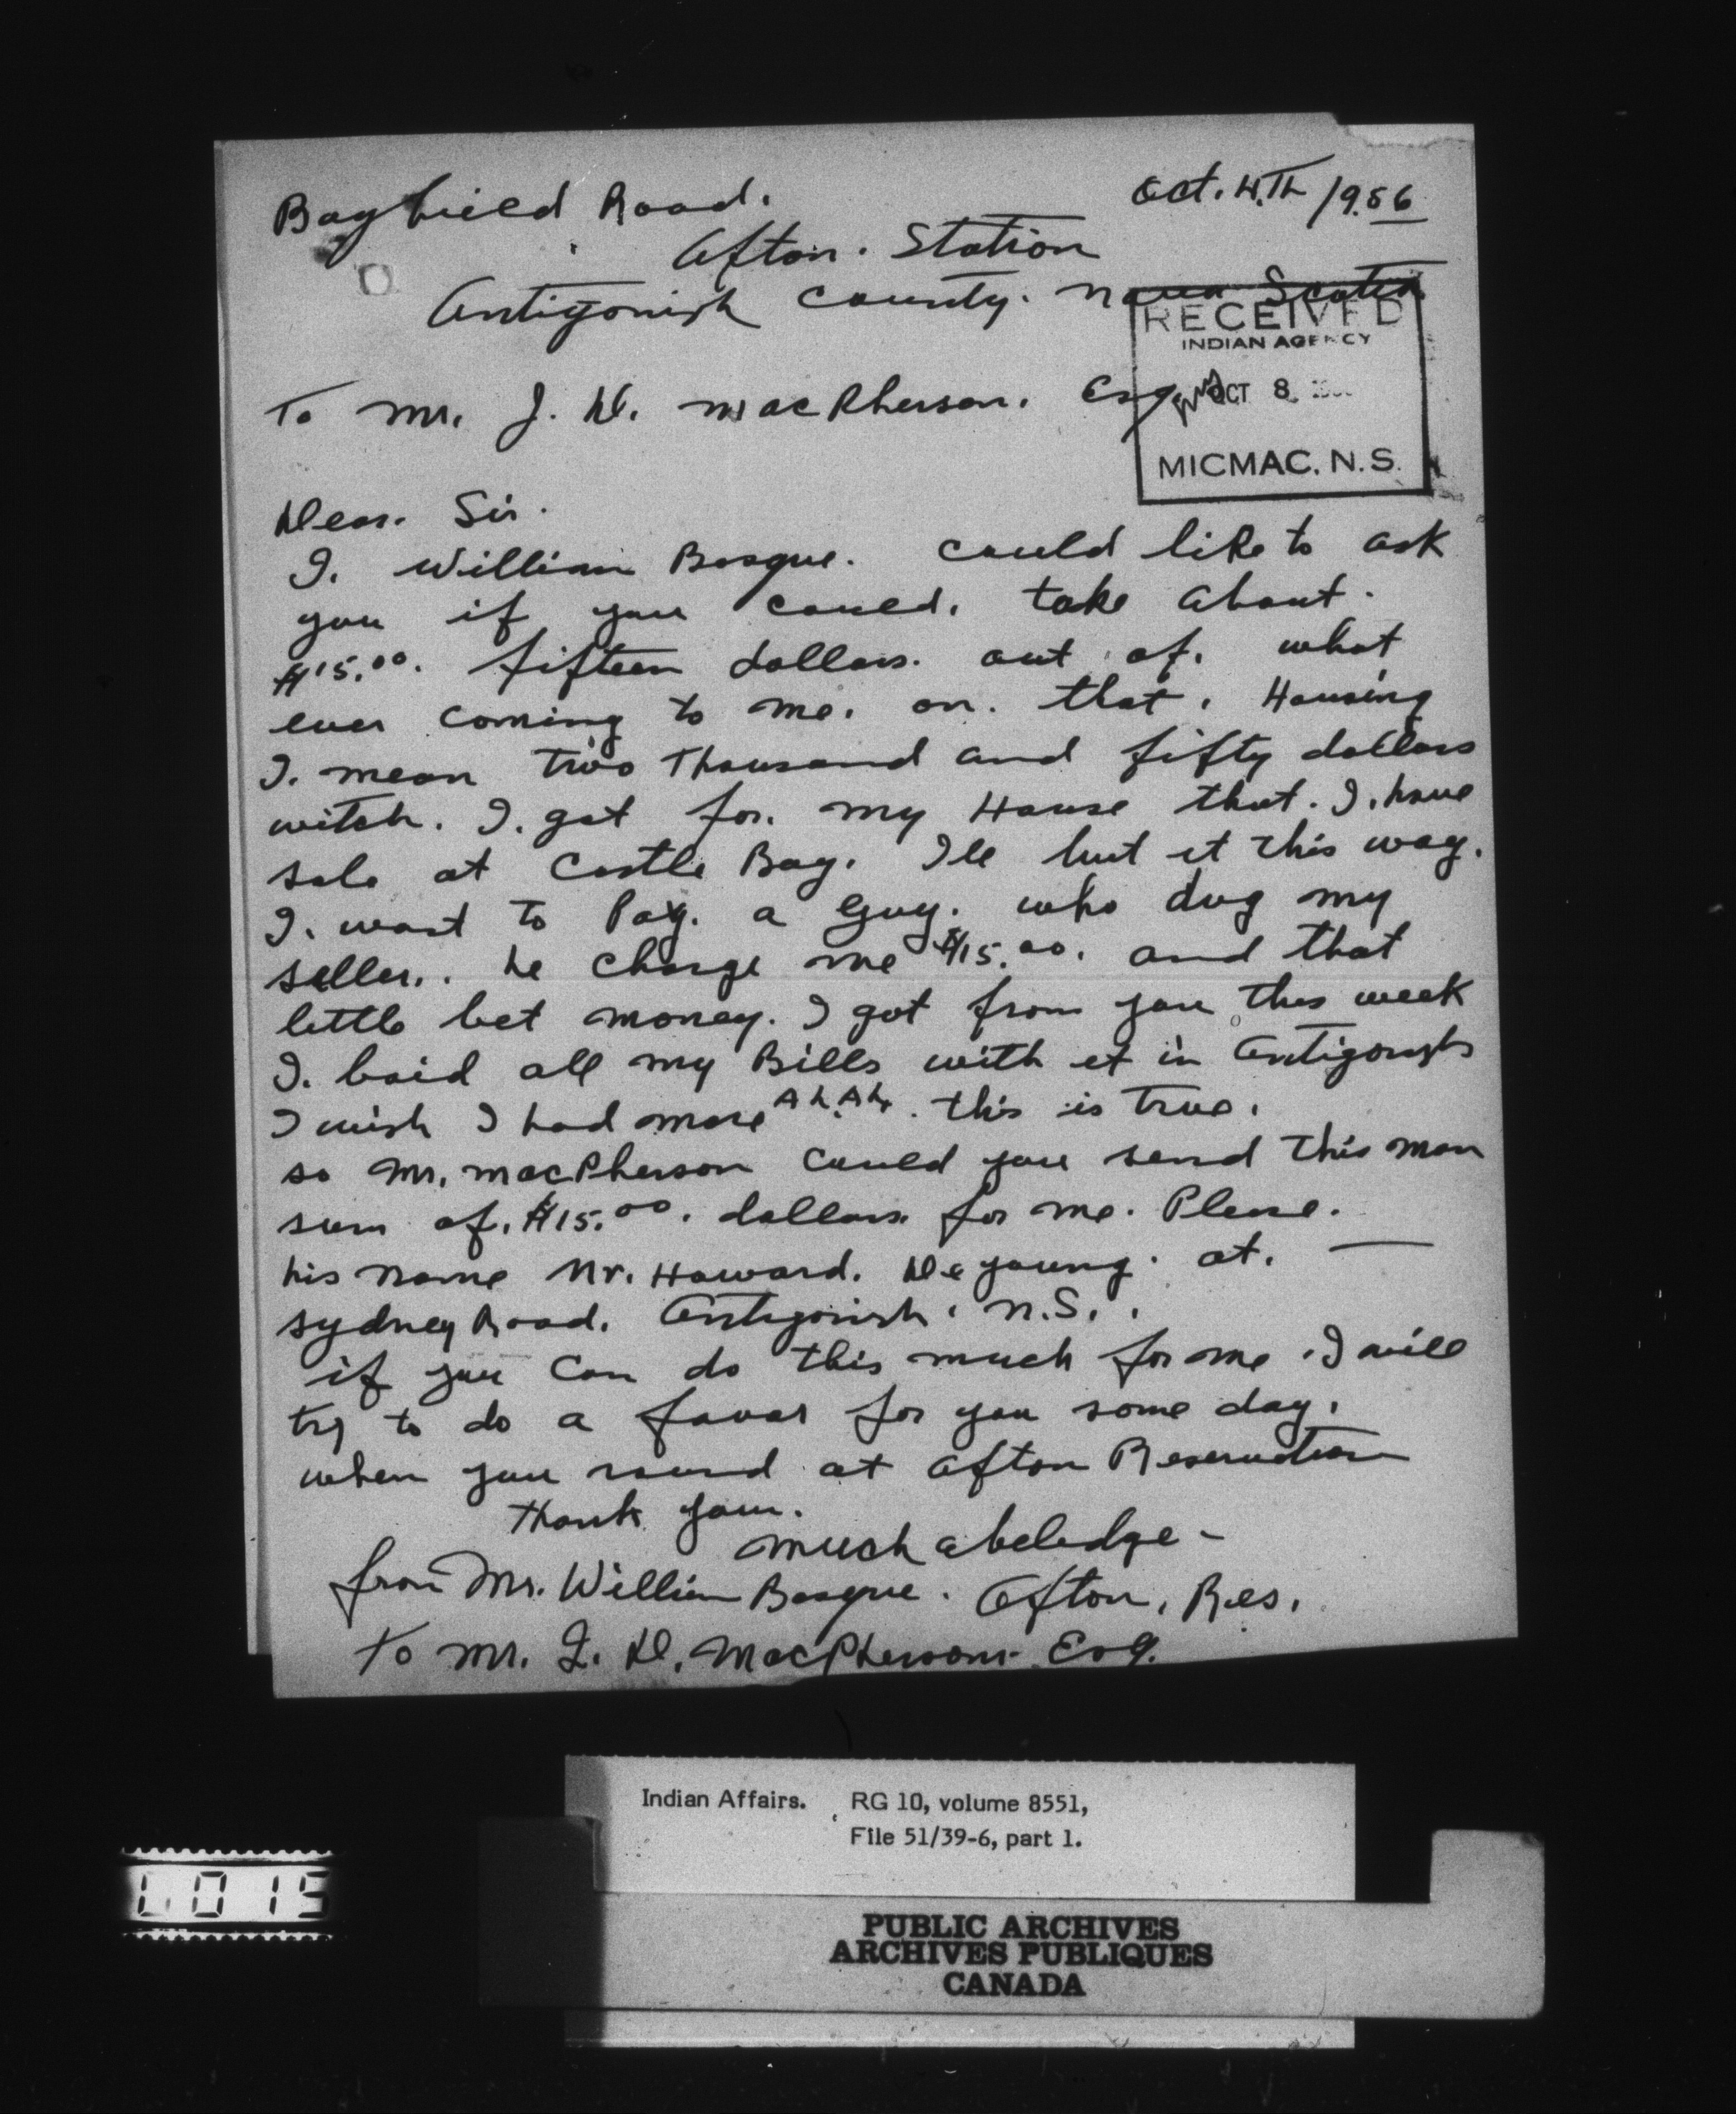 Bayfield Road.
Oct. 4.Th /9.56
Afton. Station
Antigonish County. Nova Scotia
RECEIVED
INDIAN AGENCY
OCT 8
MICMAC, N.S.
To Mr. J. D. MacPherson. Esq.
Dear. Sir.
I. William Basque. Could like to ask
you if you could. take about.
$15.00. fifteen dollars. out of. what
ever coming to me. on. that. Housing
I. mean two Thousand and fifty dollars
witch. I. got for. my House that. I. have
sale at Castle Bay. I'll but it this way.
I. want to Pay. a Guy. who dug my
seller.. he charge me $15.00. and that
little bet money. I got from you this week
I. baid all my Bills with et in Antigonish
I wish I had more Ah.Ah. this is True.
so Mr. MacPherson Could you send this man
sum of. $15.00. dollars for me. Please.
his name Mr. Howard. DeYoung. at. —
Sydney Road. Antigonish. N.S..
if you Can do this much for me. I will
try to do a favor for you some day.
when you round at Afton Reservation
Thank you.
much abeledge -
from Mr. William Basque. Afton. Res.
To Mr. J. D. MacPherson. Esq.
Indian Affairs. RG 10, volume 8551,
File 51/39-6, part 1.
PUBLIC ARCHIVES
ARCHIVES PUBLIQUES
CANADA